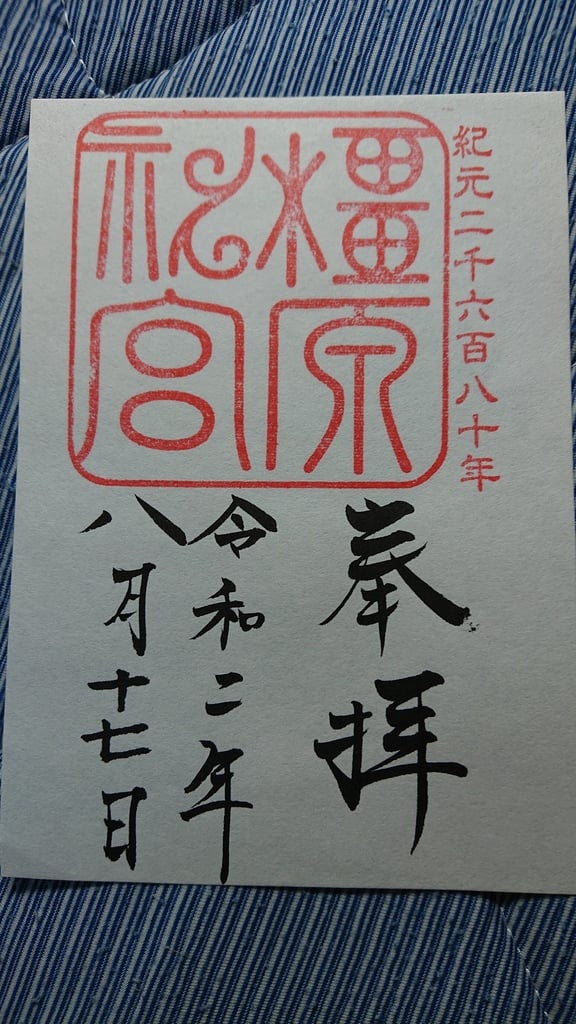 紀元二千六百八十年
橿原
神宮
奉拝
令和二年
八月十七日